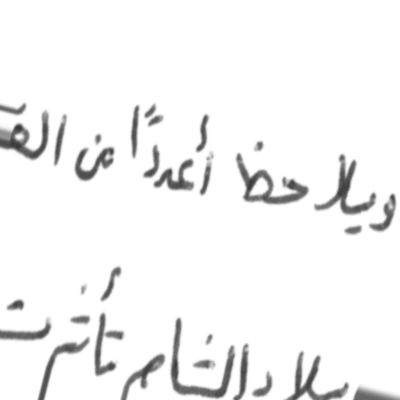 ويلاحظ أعددًا من الق
بلاد الشام تأثرت